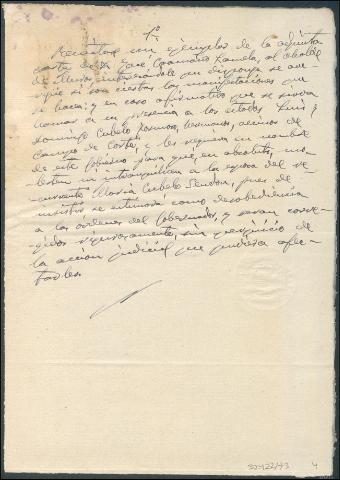 1º
Remitase un ejemplar de la adjunta
carta de D. José Caamaño al alcalde
de interesándole que disponga se ave-
rigüe si son ciertas las manifestaciones que
se hacen; y en caso afirmativo que se sirva
llamar a su presencia a los citados Luis y
Domingo Cubelo hermanos, vecinos de
Campo de Corte, y les requiera en nombre
de este Gobierno para que, en absoluto, mo-
lesten ni intranquilicen a la esposa del re-
currente María Cubelo Sendon, pues de
insistir se estimaría como desobediencia
a las órdenes del Gobernador, y serán corre-
gidos rigurosamente, sin perjuicio de
la acción judicial que pudiera afec-
tarles.
32422/93 4